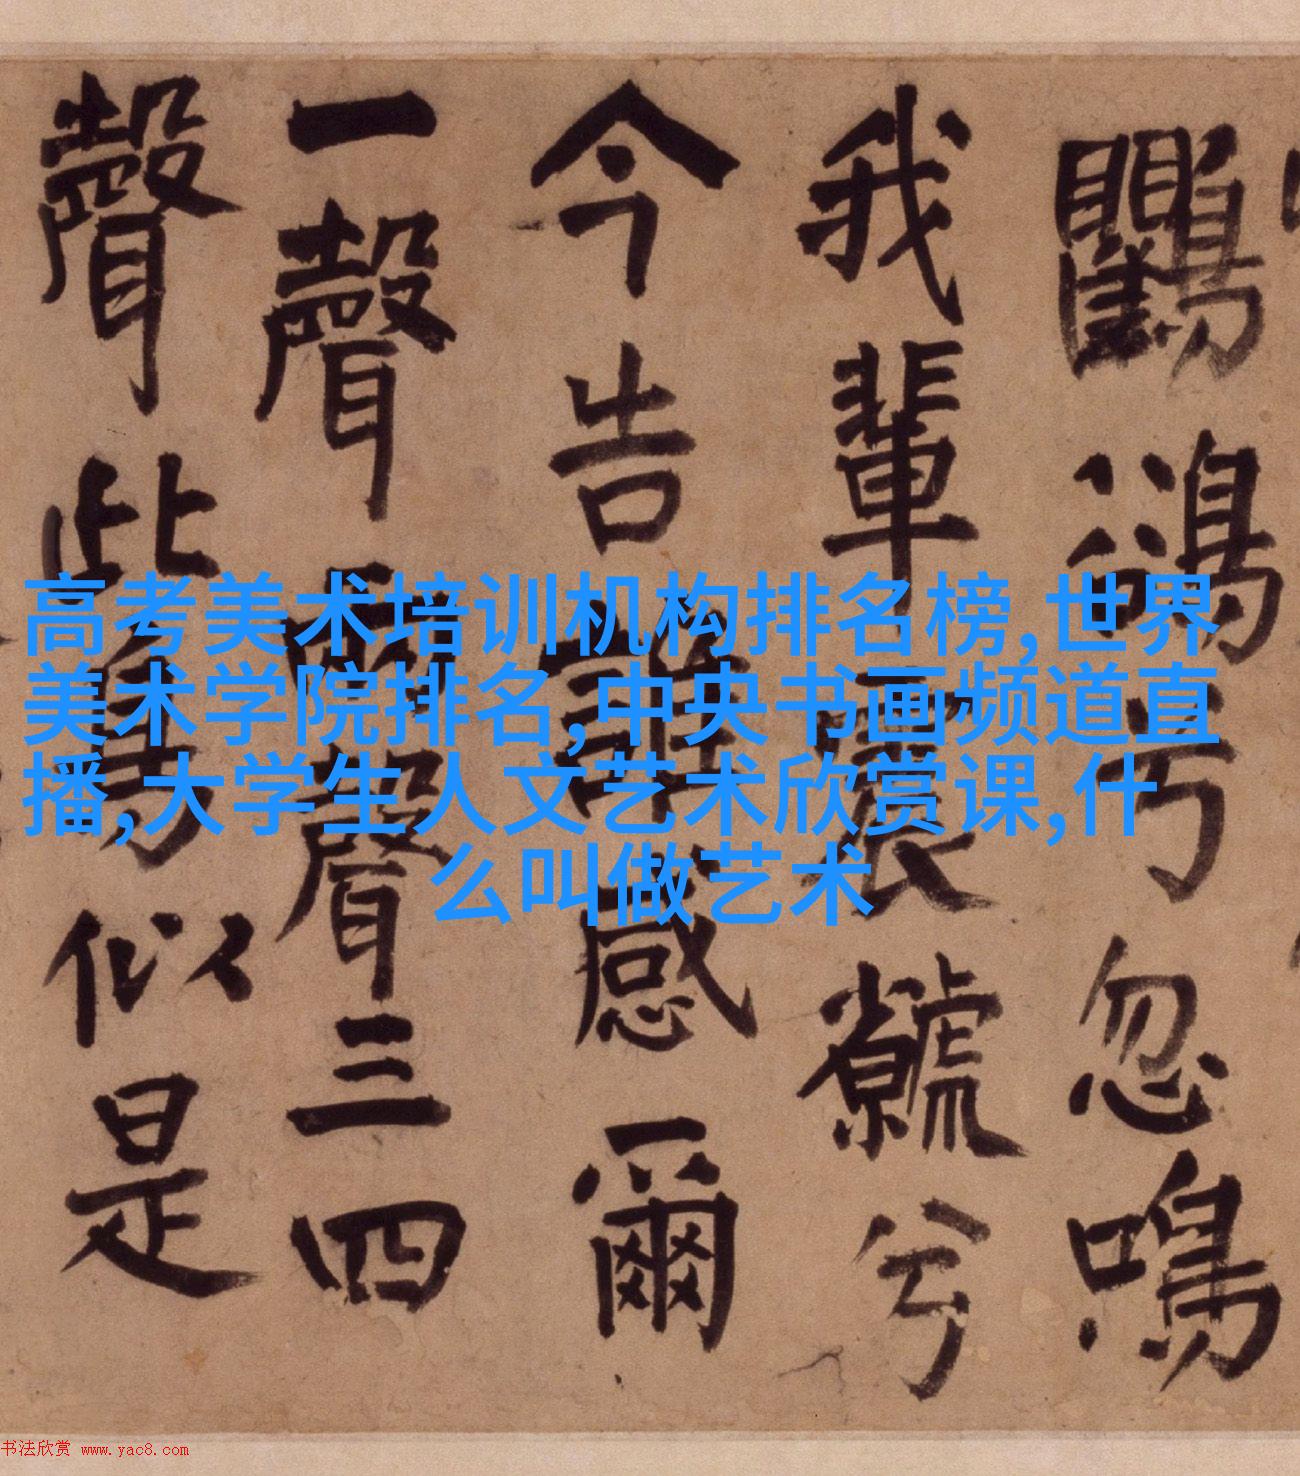 鸜鵒兮忽鳴
我輩兮
今告感爾
一聲聲三四
聲此似是
高考美术培训机构排名榜,世界
美术学院排名,中央书画频道直
播,大学生人文艺术欣赏课,什
么叫做艺术
书法欣赏 www.yac8.com